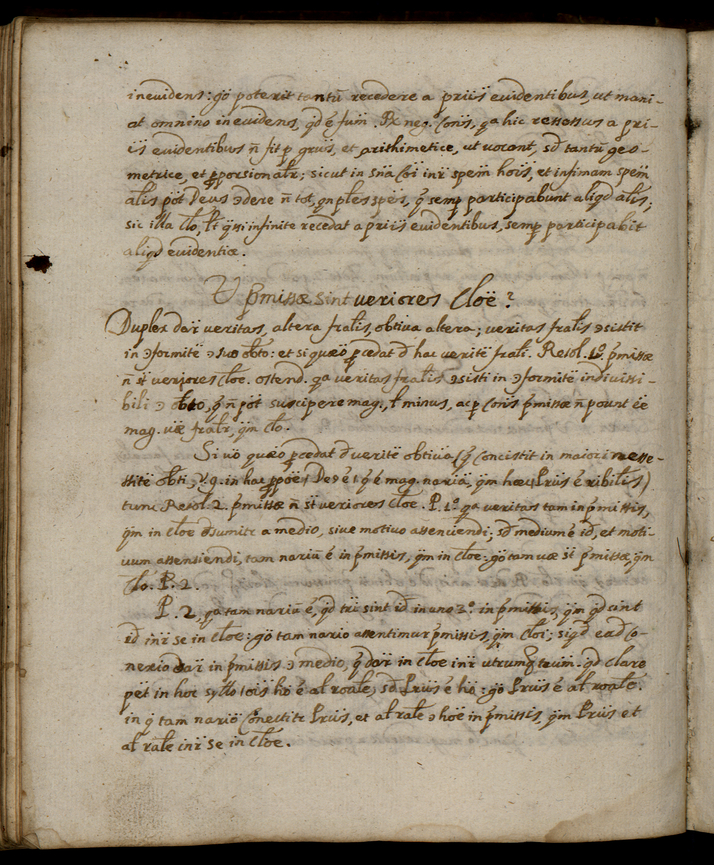 inevidens: gö poterit tantū recedere a priis evidentibus, ut mani-
at omnino inevidens, qd é fum. Rx neg. Cons, qa hic recessus a pri-
is evidentibus ñ fit p grus, et arithimetice, ut vocant, sd tantū geo-
metrice, et pporsionalr; sicut in snä Coi inr spem hois, et infimam spem
alis pöt Deus dere ñ tot, qn ples spes, q semp participabunt aliqd alis;
sic illa Clo, lt qsi infinite recedat a priis evidentibus, semp participabit
aliqd evidentiæ.
V pmissæ sint veriores Cloë?
Duplex dar veritas, altera fralis, obtiva altera; veritas fralis ɔsistit
in ɔformitë ɔ suo obto: et si quæö pcedat d hac veritë frali. Resol. 1º. pmissæ
ñ st veriores Cloe. ostend. qa veritas fralis ɔsisti in ɔformitë indivissi-
bili ɔ obto, q ñ pöt suscipere mag., l minus, ac p Cons pmissæ ñ pount ëe
mag. væ fralr, qm Clo.
Si vö quæö pcedat d veritë obtiva (q Concistit in maiori nesse-
ssitë obti, v.g. in hac ppöe, Deus é, q é mag. naria, qm hæc, Prus é ribilis)
tunc Resol. 2. pmissæ ñ st veriores Cloe. P. 1º. qa veritas tam in pmissis,
qm in Cloe dsumitr a medio, sive motivo assenciendi; sd medium é id, et moti-
vum assensiendi, tam nariü é in pmissis, qm in Cloe: gö tam væ st pmissæ, qm
Clo. P. 2.
P. 2. qa tam nariü é, qd trii sint id in uno 3º. in pmissis, qm qd uint
id inr se in Cloe: gö tam nario assentimur pmissis, qm Cloi; siqd ead Co-
nexio dar in pmissis ɔ medio, q dar in Cloe inr utrumq exüm. qd Clare
pët in hoc syllo: ois ho é al roale; sd Prus é ho: gö Prus é al roale.
in q tam nariö Conectitr Prus, et al rale ɔ hoë in pmissis, qm Prus et
al rale inr se in Cloe.